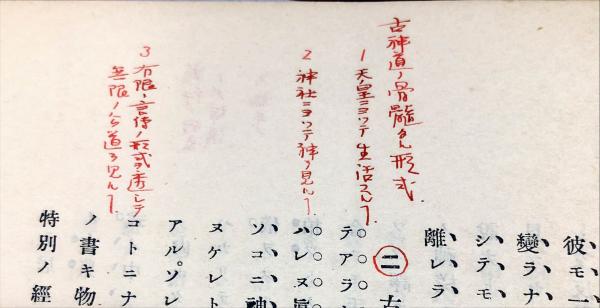 古神道ノ骨髄タル形式
1 天皇ニヨツテ生活スルヿ
2 神社ニヨツテ神ヲ見ルヿ
3 有限ノ言傳ノ形式ヲ透シテ
無限ノ道ヲ見ルヿ
彼モ一
變ラナ
シテモ
離レラ
二 古
テアラ
ハレヌ
ソコニ神
ヌケレト
アル。ソレ
コトニナ
ノ書キ物
特別ノ經